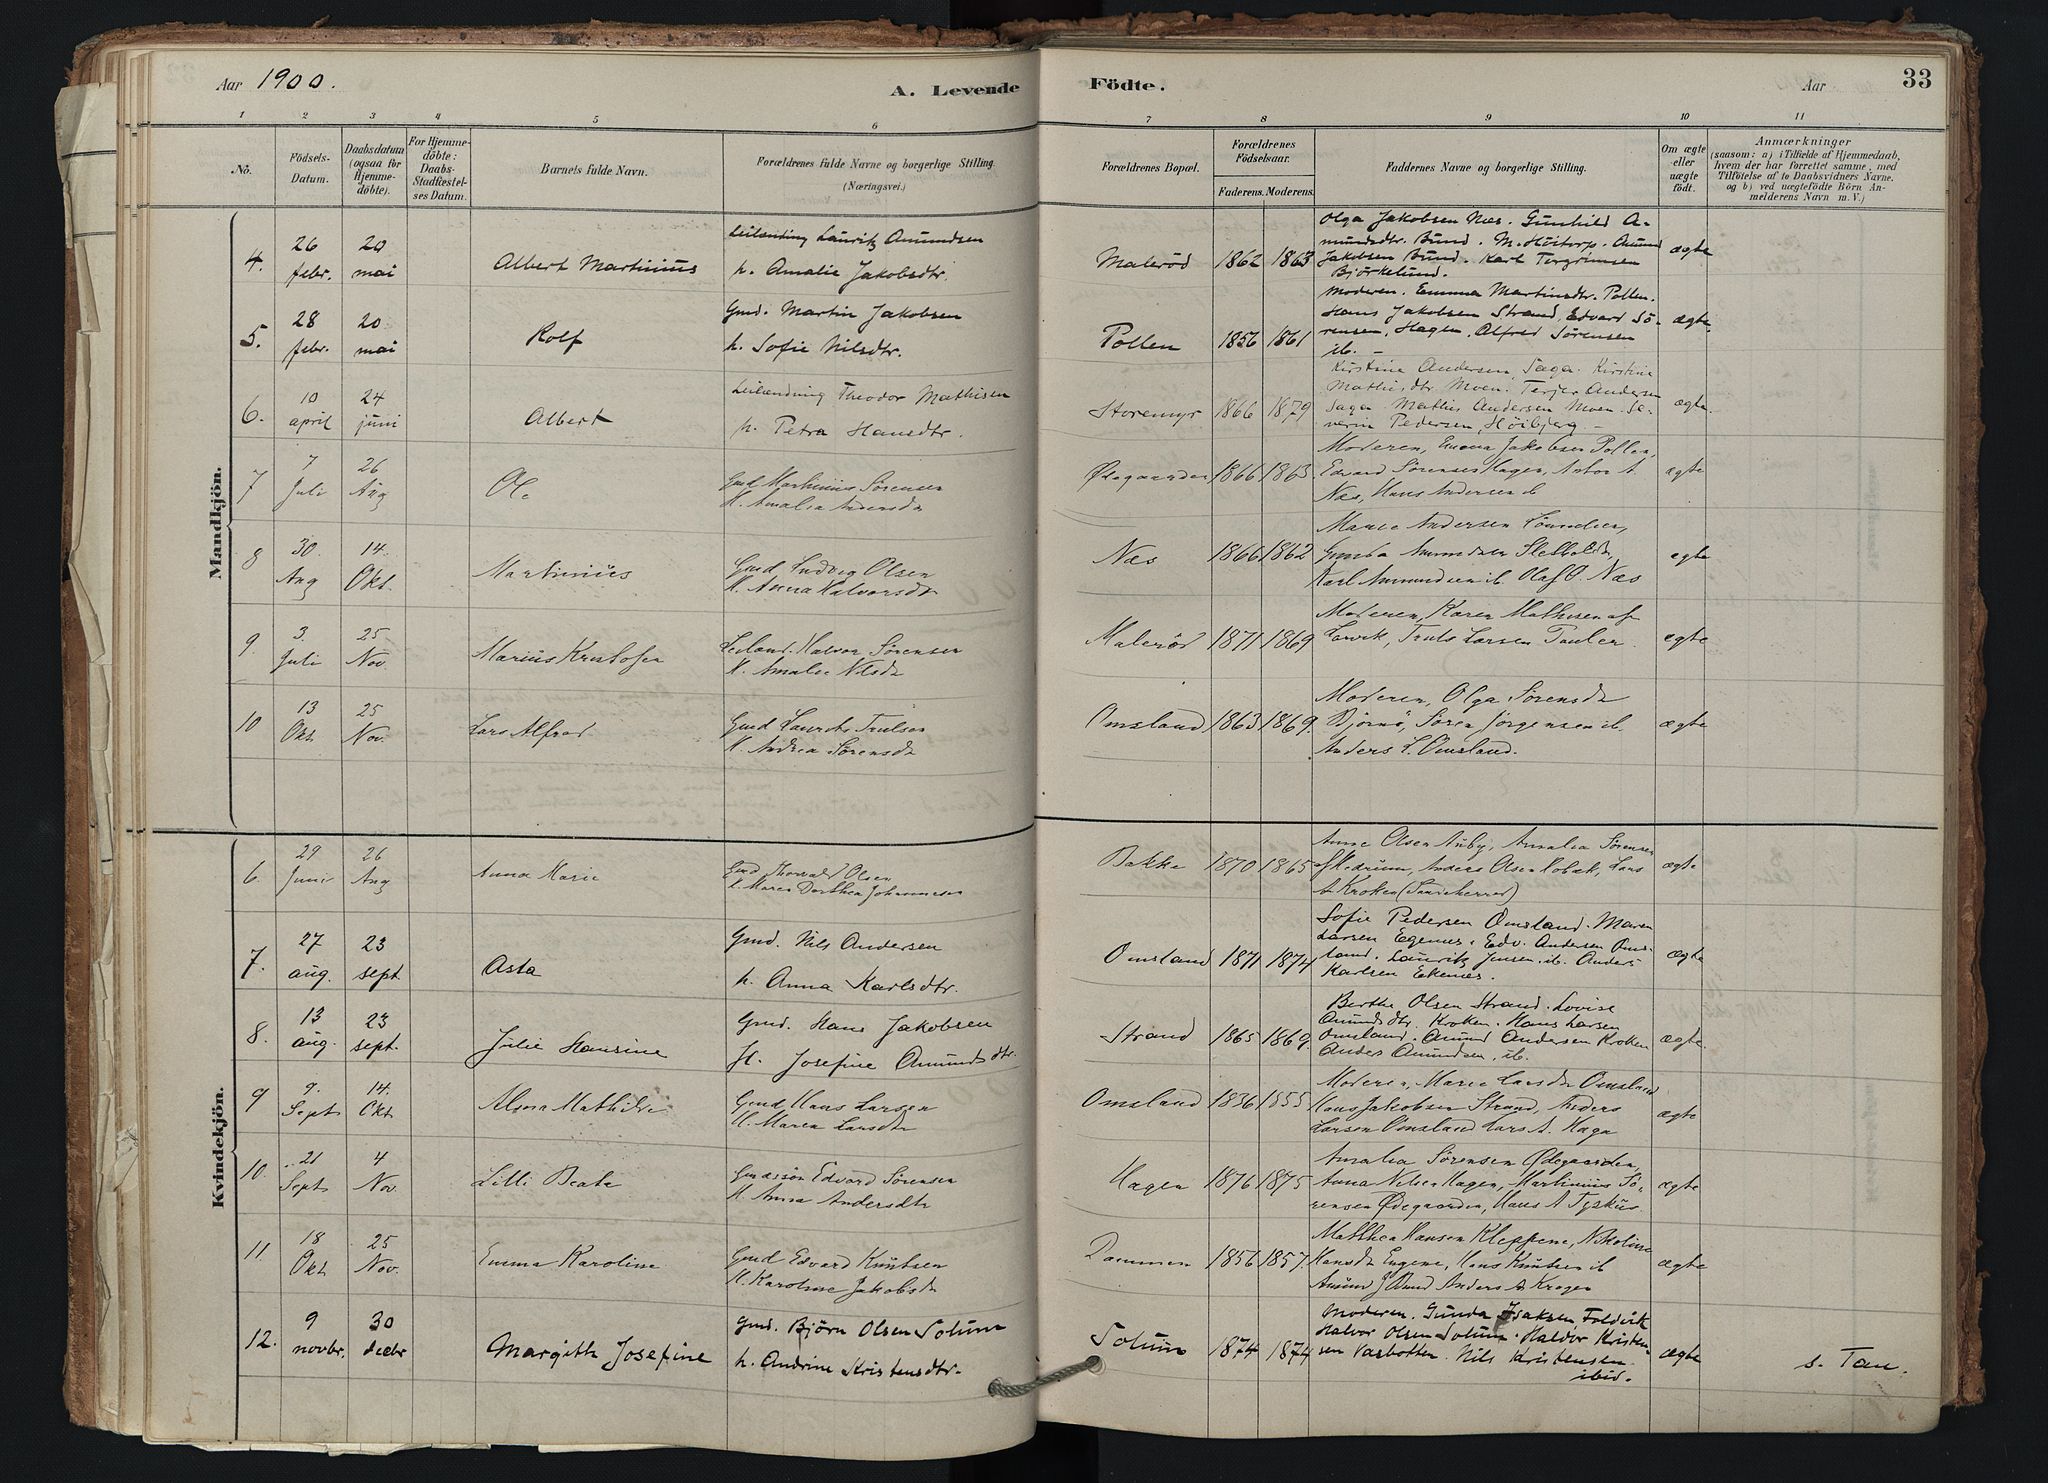 Aar 1900.
A. Levende
Födte.
Aar
33
1 2 3 4 5 6 7 8 9 10 11
No.
Födsels-
Datum.
Daabsdatum
(ogsaa for
Hjemme-
döbte).
For Hjemme-
döbte:
Daabs-
Stadfæstel-
ses Datum.
Barnets fulde Navn.
Forældrenes fulde Navne og borgerlige Stilling.
(Næringsvei.)
Forældrenes Bopæl.
Forældrenes
Födselsaar.
Faderens. Moderens.
Faddernes Navne og borgerlige Stilling.
Om ægte
eller
uægte
födt.
Anmærkninger
(saasom: a) i Tilfælde af Hjemmedaab,
hvem der har forrettet samme, med
Tilföielse af to Daabsvidners Navne.
og b) ved uægtefödte Börn An-
melderens Navn m. V.)
Mandkjön.
4. 26 febr. 20 mai
Albert Martinius
Leilænding Lauritz Amundsen
h. Amalie Jakobsdtr.
Maleröd 1862 1863
Olga Jakobsen Næs. Gunhild A-
mundsdtr. Bund. M. Huitorp. Amund
Jakobsen Bund. Karl Torgrimsen
Björkelund.
ægte
5. 28 febr. 20 mai
Rolf
Gmd. Martin Jakobsen
h. Sofie Nilsdtr.
Pollen 1856 1861
Moderen. Emma Martinsdtr. Pollen.
Hans Jakobsen Strand, Edvard Sö-
rensen, Hagen. Alfred Sörensen
ib. –
ægte.
6. 10 april 24 juni
Albert
Leilænding Theodor Mathisen
h. Petra Hansdtr.
Storemyr 1866 1879
Kirstine Andersen Saga. Kirstine
Mathisdtr Moen. Terjer Andersen
Saga. Mathis Andersen Moen. Se-
verin Pedersen, Höibjerg. –
ægte.
7 7 Juli 26 Aug
Ole
Gmd Martinius Sørensen
H. Amalia Andersdr
Ødegaarden 1866 1863
Moderen, Emma Jakobsen Pollen,
Edvard Sørensen Hagen, Anton A.
Næs, Hans Andersen ib
ægte
8 30 Aug 14. Okt.
Martinius
Gmd Ludvig Olsen
H. Anna Halvorsdr
Næs 1866 1862
Marie Andersen
Ammundsen
Karl Ammundsen ib Olaf O. Næs
ægte
9. 3. Juli 25 Nov.
Marius Kristofer
Leiland. Halvor Sørensen
H. Amalie Nilsdr
Malerød 1871 1869
Moderen, Karen Mathisen af
Larvik, Truls Larsen Pauler.
ægte
10 13 Okt 25 Nov.
Lars Alfred
Gmd Laurits Trulsen
H. Andrea Sørensdr
Omsland 1863 1869.
Moderen, Olga Sørensdr
Bjørnø, Søren Jørgensen ib.
Anders L. Omsland.
ægte
Kvindekjön.
6. 29 Juni 26 Aug
Anna Marie
Gmd Thorvald Olsen
H. Maren Dorthea Johannesen
Bakke 1870 1865
Anne Olsen Auby, Amalia Sørensen
Skedrum, Anders Olsen Lobæk, Lars
A Kroken (Sandeherred)
ægte
7. 27 aug. 23 sept.
Asta
Gmd. Nils Andersen
h. Anna Karlsdtr.
Omsland 1871 1874
Sofie Pedersen Omsland. Maren
Larsen Egenes. Edv. Andersen Oms-
land. Lauritz Jensen. ib. Anders
Karlsen Ekenes.
ægte
8. 13 aug. 23 sept.
Julie Hansine
Gmd. Hans Jakobsen
H. Josefine Amundsdtr.
Strand 1865 1869.
Berthe Olsen Strand. Lovise
Amundsdtr. Kroken. Hans Larsen
Omsland. Amund Andersen Kroken
Anders Amundsen. ib.
ægte.
9 9. Sept 14. Okt
Alma Mathilde
Gmd Hans Larsen
H. Maren Larsdr
Omsland 1836 1855
Moderen, Marie Larsdr Omsland
Hans Jakobsen Strand, Anders
Larsen Omsland Lars A. Haga
ægte
10. 21 Sept 4 Nov.
Lilli Beate
Gmdssøn Edvard Sørensen
H. Anna Andersdtr
Hagen 1876 1875
Amalia Sørensen Ødegaarden,
Anna Nilsen Hagen, Martinius Sø-
rensen Ødegaarden, Hans A Tyskus.
ægte
11. 18 Okt 25 Nov.
Emma Karoline
Gmd Edvard Knutsen
H. Karoline Jakobsdr
Dammen 1856 1857.
Matthea Hansen Kleppene, Nikoline
Hansdr Eugene, Hans Knutsen ib
Amund J Bund Anders A Kroger
ægte
12. 9 novbr. 30 decbr
Margith Josefine
Gmd. Björn Olsen Solum
h. Andrine Kristensdtr.
Solum 1874 1874
Moderen. Gunda Isaksen, Foldvik
Halvor Olsen Solum. Haldor Kristen-
sen Vasbotten. Nils Kristensen
ibid.
ægte
s. Tan.